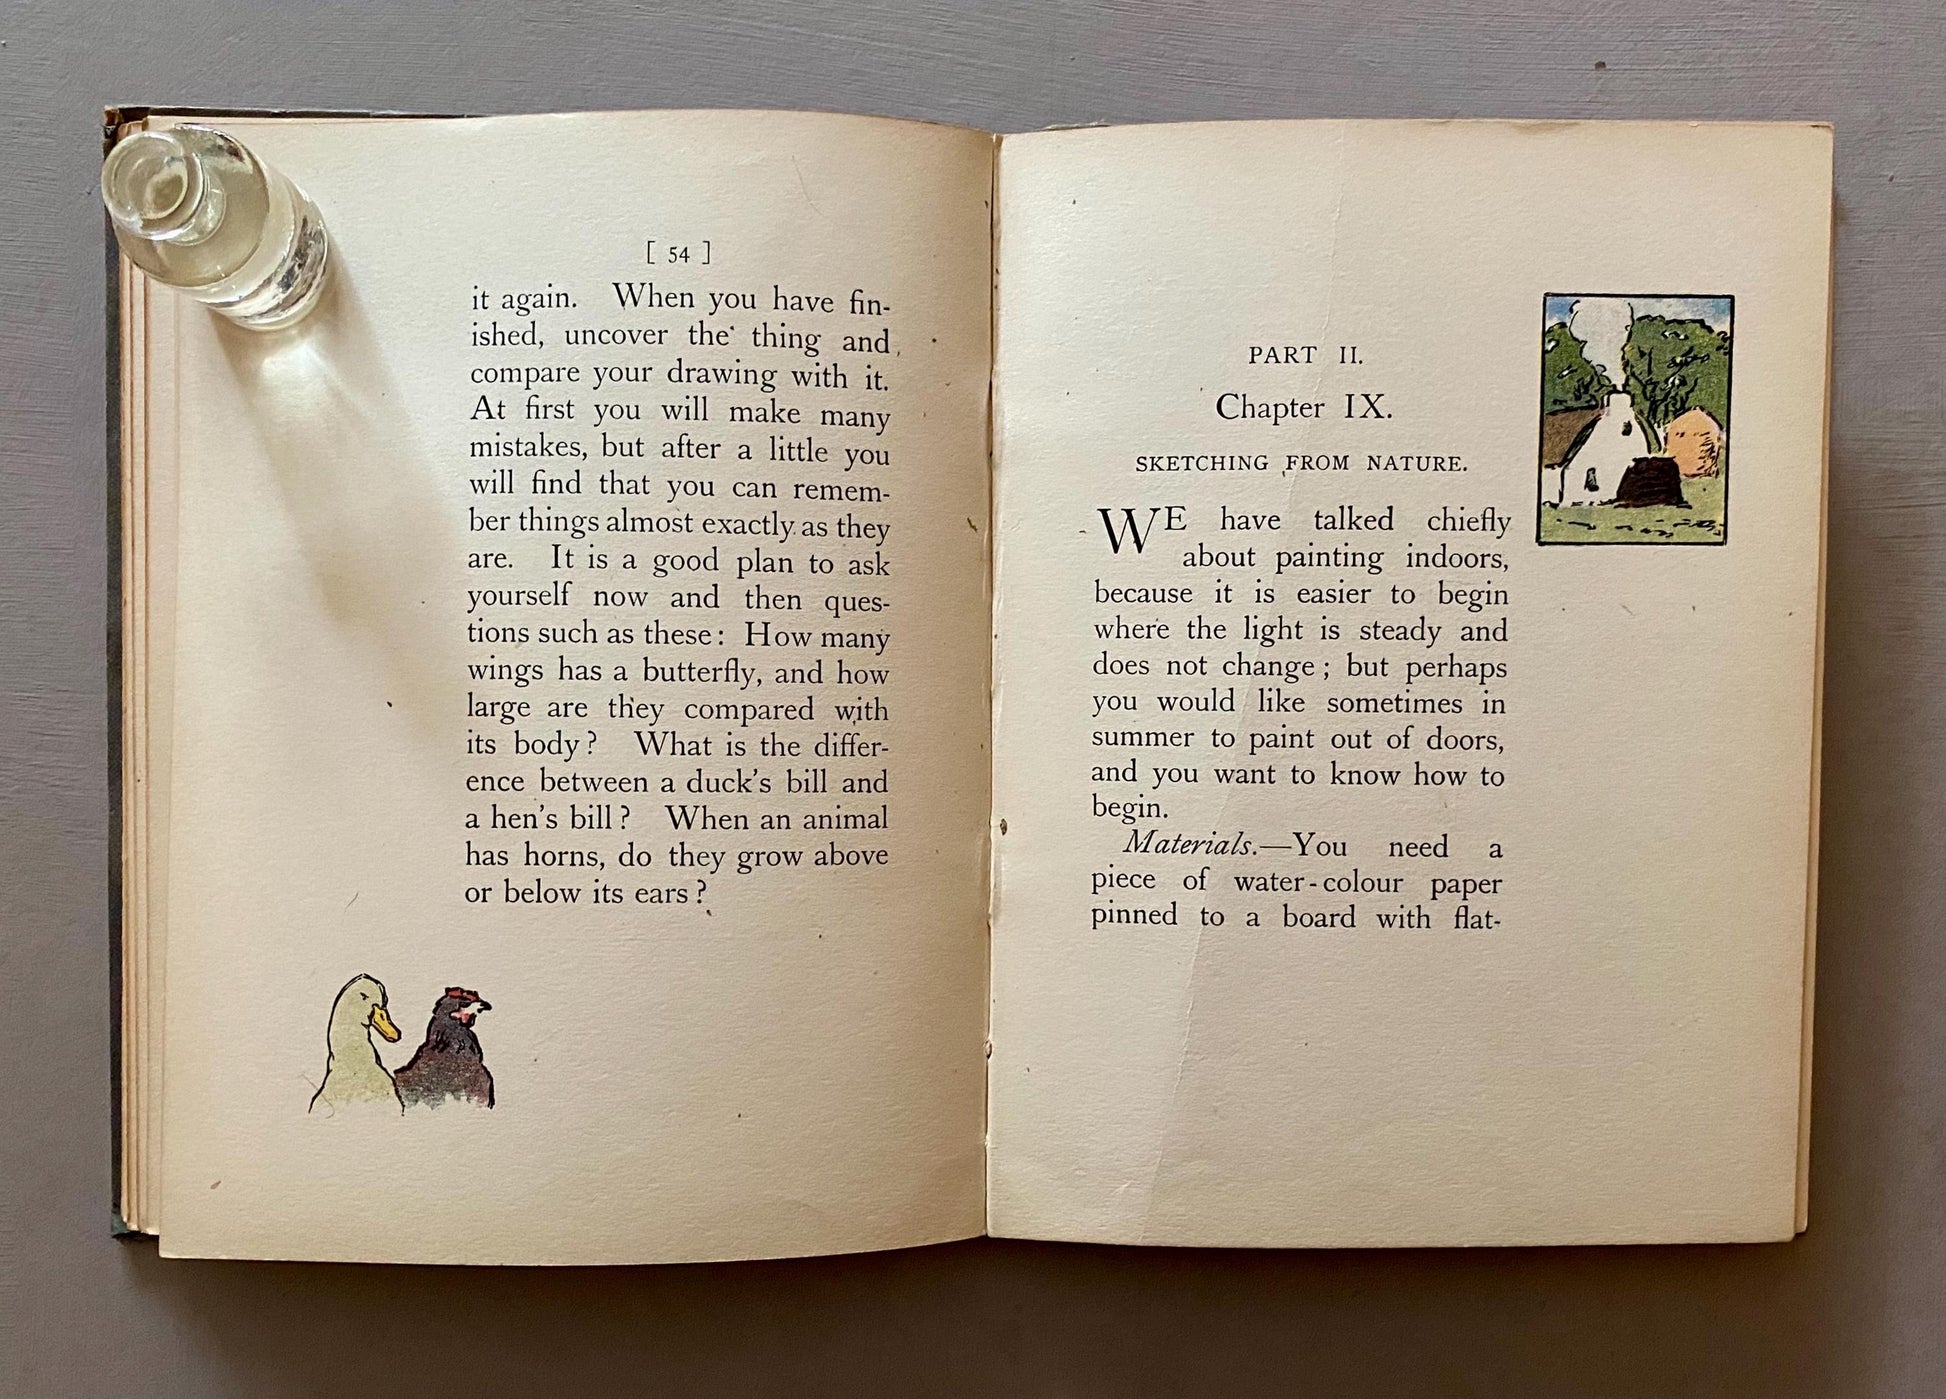 [ 54 ]
it again. When you have fin-
ished, uncover the thing and
compare your drawing with it.
At first you will make many
mistakes, but after a little you
will find that you can remem-
ber things almost exactly as they
are. It is a good plan to ask
yourself now and then ques-
tions such as these: How many
wings has a butterfly, and how
large are they compared with
its body? What is the differ-
ence between a duck's bill and
a hen's bill? When an animal
has horns, do they grow above
or below its ears?
PART II.
Chapter IX.
SKETCHING FROM NATURE.
WE have talked chiefly
about painting indoors,
because it is easier to begin
where the light is steady and
does not change; but perhaps
you would like sometimes in
summer to paint out of doors,
and you want to know how to
begin.
Materials.—You need a
piece of water-colour paper
pinned to a board with flat-